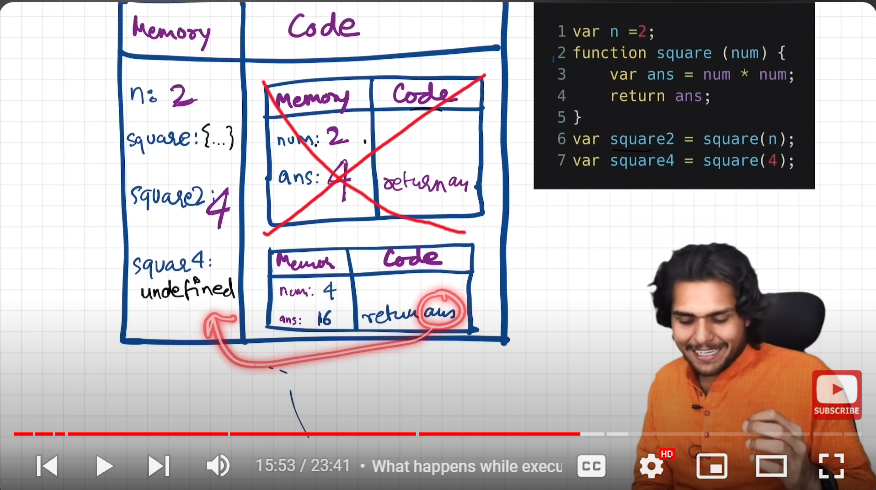 Memory Code
n: 2
square: {...}
square2: 4
squar4:
undefined
Memory Code
num: 2
ans: 4
return an
Memor Code
num: 4
ans: 16
return ans
1 var n =2;
2 function square (num) {
3 var ans = num * num;
4 return ans;
5 }
6 var square2 = square(n);
7 var square4 = square(4);
SUBSCRIBE
15:53 / 23:41 • What happens while execu
CC
HD